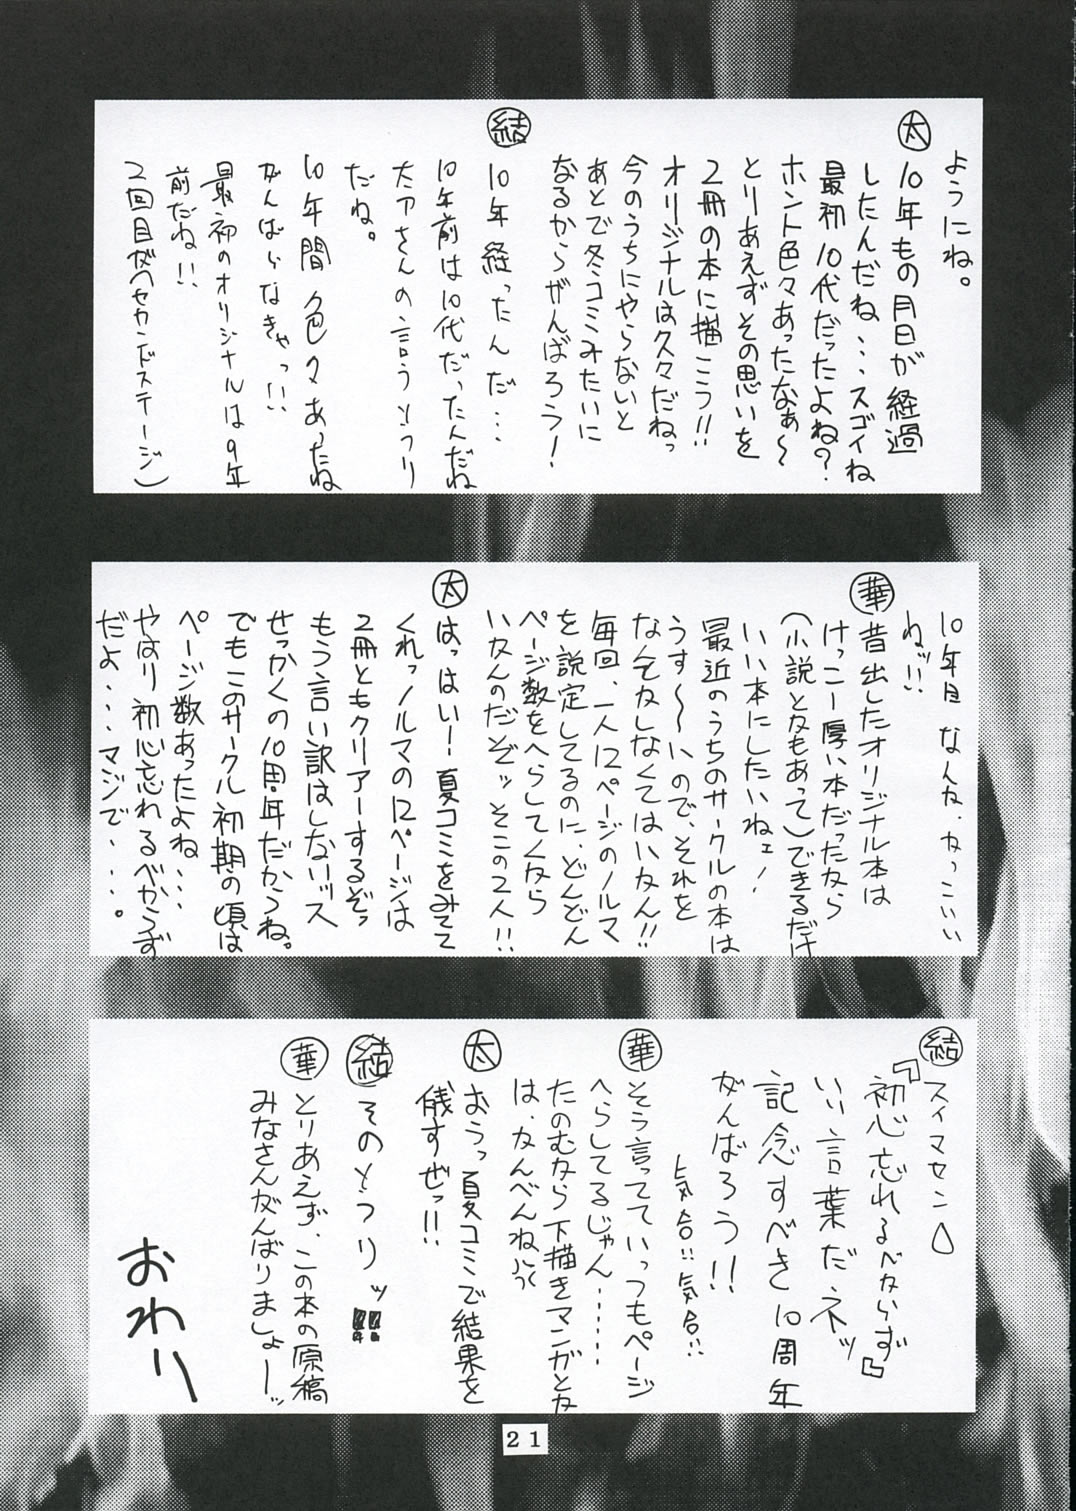 ようにね。
太
10年もの月日が経過
したんだね、、、スゴイね
最初10代だったよね?
ホント色々あったなぁ～
とりあえずその思いを
2冊の本に描こう!!
オリジナルは久々だねっ
今のうちにやらないと
あとで冬コミみたいに
なるからがんばろう!
結
10年経ったんだ・・・
10年前は10代だったんだね
太アさんの言うとうり
だね。
10年間色々あったね
がんばらなきゃっ!!
最初のオリジナルは9年
前だね!!
2回目が(セカンドステージ)
10年目なんか、かっこいい
ねッ!!
華
昔出したオリジナル本は
けっこー厚い本だったから
(小説とかもあって)できるだけ
いい本にしたいねェ!
最近のうちのサークルの本は
うす～～いので、それを
なんとかしなくてはいかん!!
毎回、一人12ページのノルマ
を設定してるのに、どんどん
ページ数をへらしてくから
いかんのだぞッそこの2人!!
太
はっはい!夏コミをみてて
くれっノルマの12ページは
2冊ともクリアーするぞっ
もう言い訳はしないッス
せっかくの10周年だからね。
でもこのサークル初期の頃は
ページ数あったよね、、、
やはり初心忘れるべからず
だよ、、、マジで、、、。
結
スイマセン
『初心忘れるべからず』
いい言葉だネッ
記念すべき10周年
がんばろう!!
気合!!気合!!
華
そう言ってていっつもページ
へらしてるじゃん・・・・・・
たのむから下描きマンガとか
は、かんべんね
太
おうっ夏コミで結果を
残すぜっ!!
結
そのとうりッ!!
華
とりあえず、この本の原稿
みなさんがんばりましょーッ
おわり
21